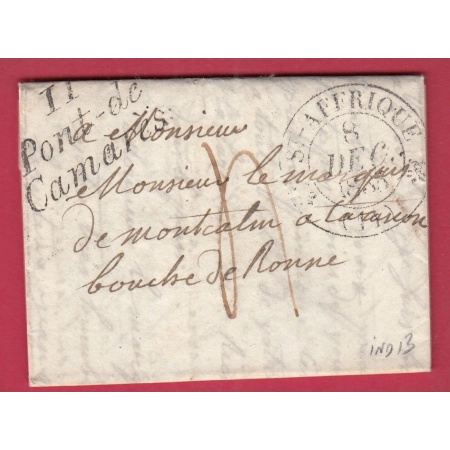 11
Pont-de
Camarès
ST-AFFRIQUE
8
DEC.
(11)
a Monsieur
Monsieur le marquis
de montcalm a
bouche de Ronne
IND 13